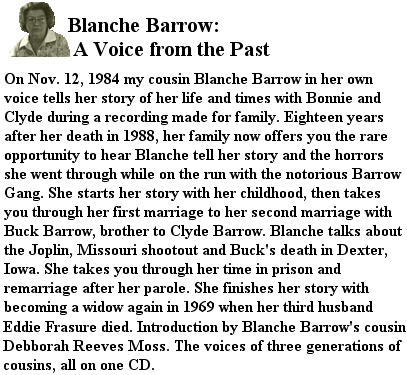 Blanche Barrow:
A Voice from the Past
On Nov. 12, 1984 my cousin Blanche Barrow in her own
voice tells her story of her life and times with Bonnie and
Clyde during a recording made for family. Eighteen years
after her death in 1988, her family now offers you the rare
opportunity to hear Blanche tell her story and the horrors
she went through while on the run with the notorious Barrow
Gang. She starts her story with her childhood, then takes
you through her first marriage to her second marriage with
Buck Barrow, brother to Clyde Barrow. Blanche talks about
the Joplin, Missouri shootout and Buck's death in Dexter,
Iowa. She takes you through her time in prison and
remarriage after her parole. She finishes her story with
becoming a widow again in 1969 when her third husband
Eddie Frasure died. Introduction by Blanche Barrow's cousin
Debborah Reeves Moss. The voices of three generations of
cousins, all on one CD.